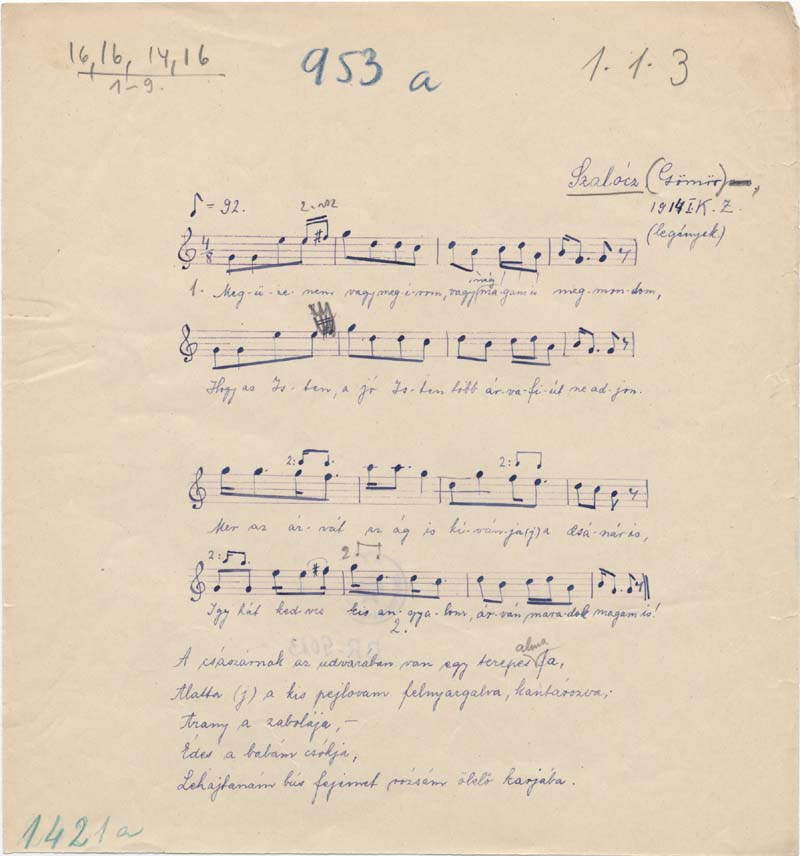 16, 16, 14, 16
1-9.
953 a
1. 1. 3
Szalócz (Gömör),
1914 I. K. Z.
(legények)
♪ = 92.
2.
4/8
1. Meg-ü-ze-nem vagy meg-i-rom, vagy még ma-gam is meg-mon-dom,
Hogy az Is-ten, a jó Is-ten több ár-va fi-út ne ad-jon.
2: 2:
Mer az ár-vát az ág is ki-ván-ja (j) a
2: 2
Igy hát ked-ves kis an-gya-lom, ár-ván mara-dok magam is!
2.
A császárnak az udvarában van egy terepes alma fa,
Alatta (j) a kis pejlovam felnyargalva, kantározva;
Arany a zabolája, –
Édes a babám csókja,
Lehajtanám bús fejemet rózsám ölelő karjába.
1421a